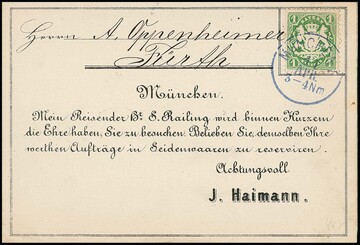 Herrn A. Oppenheimer
Fürth
MÜNCHEN
APR.
3-4Nm
München.
Mein Reisender Hr. S. Railing wird binnen Kurzem
die Ehre haben, Sie zu besuchen. Belieben Sie, demselben Ihre
werthen Aufträge in Seidenwaaren zu reserviren.
Achtungsvoll
J. Haimann.